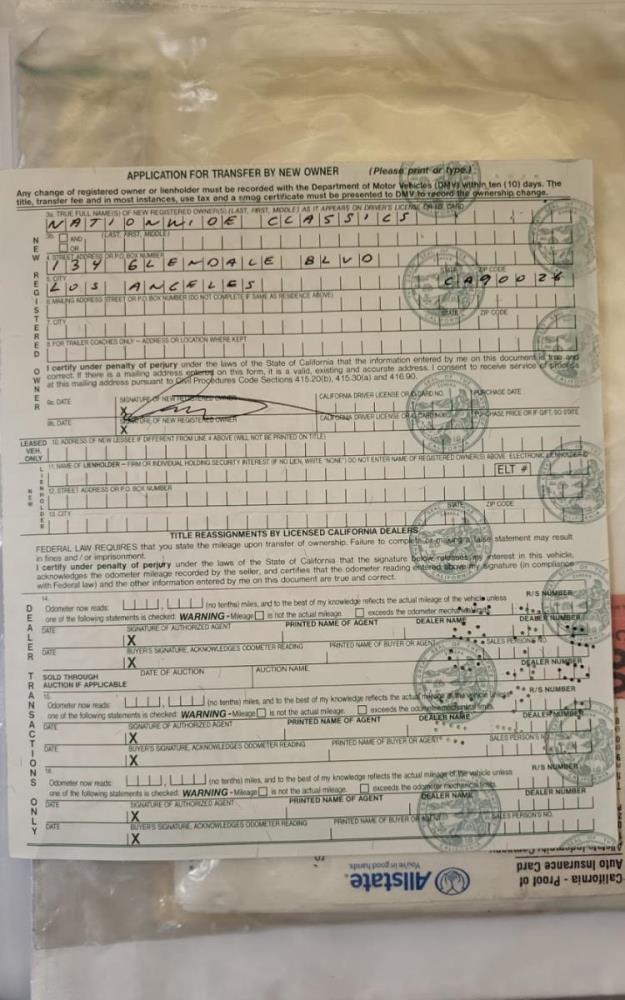 APPLICATION FOR TRANSFER BY NEW OWNER (Please print or type.)
Any change of registered owner or lienholder must be recorded with the Department of Motor Vehicles (DMV) within ten (10) days. The
title, transfer fee and in most instances, use tax and a smog certificate must be presented to DMV to record the ownership change.
3a. TRUE FULL NAME(S) OF NEW REGISTERED OWNER(S) (LAST, FIRST, MIDDLE) AS IT APPEARS ON DRIVER'S LICENSE OR ID. CARD
NATIONWIDE CLASSICS
3b. AND (LAST, FIRST, MIDDLE)
OR
4. STREET ADDRESS OR P.O. BOX NUMBER
134 GLENDALE BLVD
5. CITY STATE ZIP CODE
LOS ANGELES CA 90026
6. MAILING ADDRESS (STREET OR P.O. BOX NUMBER (DO NOT COMPLETE IF SAME AS RESIDENCE ABOVE)
7. CITY STATE ZIP CODE
8. FOR TRAILER COACHES ONLY – ADDRESS OR LOCATION WHERE KEPT
NEW REGISTERED OWNER
I certify under penalty of perjury under the laws of the State of California that the information entered by me on this document is true and
correct. If there is a mailing address entered on this form, it is a valid, existing and accurate address. I consent to receive service of process
at this mailing address pursuant to Civil Procedures Code Sections 415.20(b), 415.30(a) and 416.90.
9a. DATE SIGNATURE OF NEW REGISTERED OWNER CALIFORNIA DRIVER LICENSE OR ID CARD NO. PURCHASE DATE
X
9b. DATE SIGNATURE OF NEW REGISTERED OWNER CALIFORNIA DRIVER LICENSE OR ID CARD NO. PURCHASE PRICE OR IF GIFT, SO STATE
X
LEASED VEH. ONLY
10. ADDRESS OF NEW LESSEE IF DIFFERENT FROM LINE 4 ABOVE (WILL NOT BE PRINTED ON TITLE)
NEW LIENHOLDER
11. NAME OF LIENHOLDER – FIRM OR INDIVIDUAL HOLDING SECURITY INTEREST (IF NO LIEN, WRITE "NONE") DO NOT ENTER NAME OF REGISTERED OWNER(S) ABOVE ELECTRONIC LIENHOLDER
ELT #
12. STREET ADDRESS OR P.O. BOX NUMBER
13. CITY STATE ZIP CODE
TITLE REASSIGNMENTS BY LICENSED CALIFORNIA DEALERS
FEDERAL LAW REQUIRES that you state the mileage upon transfer of ownership. Failure to complete or making a false statement may result
in fines and / or imprisonment.
I certify under penalty of perjury under the laws of the State of California that the signature below releases my interest in this vehicle,
acknowledges the odometer mileage recorded by the seller, and certifies that the odometer reading entered above my signature (in compliance
with Federal law) and the other information entered by me on this document are true and correct.
DEALER TRANSACTIONS ONLY
14. R/S NUMBER
Odometer now reads: (no tenths) miles, and to the best of my knowledge reflects the actual mileage of the vehicle unless
one of the following statements is checked: WARNING - Mileage is not the actual mileage. exceeds the odometer mechanical limits.
DATE SIGNATURE OF AUTHORIZED AGENT PRINTED NAME OF AGENT DEALER NAME DEALER NUMBER
X
DATE BUYER'S SIGNATURE, ACKNOWLEDGES ODOMETER READING PRINTED NAME OF BUYER OR AGENT SALES PERSON'S NO.
X
SOLD THROUGH DATE OF AUCTION AUCTION NAME DEALER NUMBER
AUCTION IF APPLICABLE
15. R/S NUMBER
Odometer now reads: (no tenths) miles, and to the best of my knowledge reflects the actual mileage of the vehicle unless
one of the following statements is checked: WARNING - Mileage is not the actual mileage. exceeds the odometer mechanical limits.
DATE SIGNATURE OF AUTHORIZED AGENT PRINTED NAME OF AGENT DEALER NAME DEALER NUMBER
X
DATE BUYER'S SIGNATURE, ACKNOWLEDGES ODOMETER READING PRINTED NAME OF BUYER OR AGENT SALES PERSON'S NO.
X
16. R/S NUMBER
Odometer now reads: (no tenths) miles, and to the best of my knowledge reflects the actual mileage of the vehicle unless
one of the following statements is checked: WARNING - Mileage is not the actual mileage. exceeds the odometer mechanical limits.
DATE SIGNATURE OF AUTHORIZED AGENT PRINTED NAME OF AGENT DEALER NAME DEALER NUMBER
X
DATE BUYER'S SIGNATURE, ACKNOWLEDGES ODOMETER READING PRINTED NAME OF BUYER OR AGENT SALES PERSON'S NO.
X
California - Proof of
Auto Insurance Card
Allstate
You're in good hands.